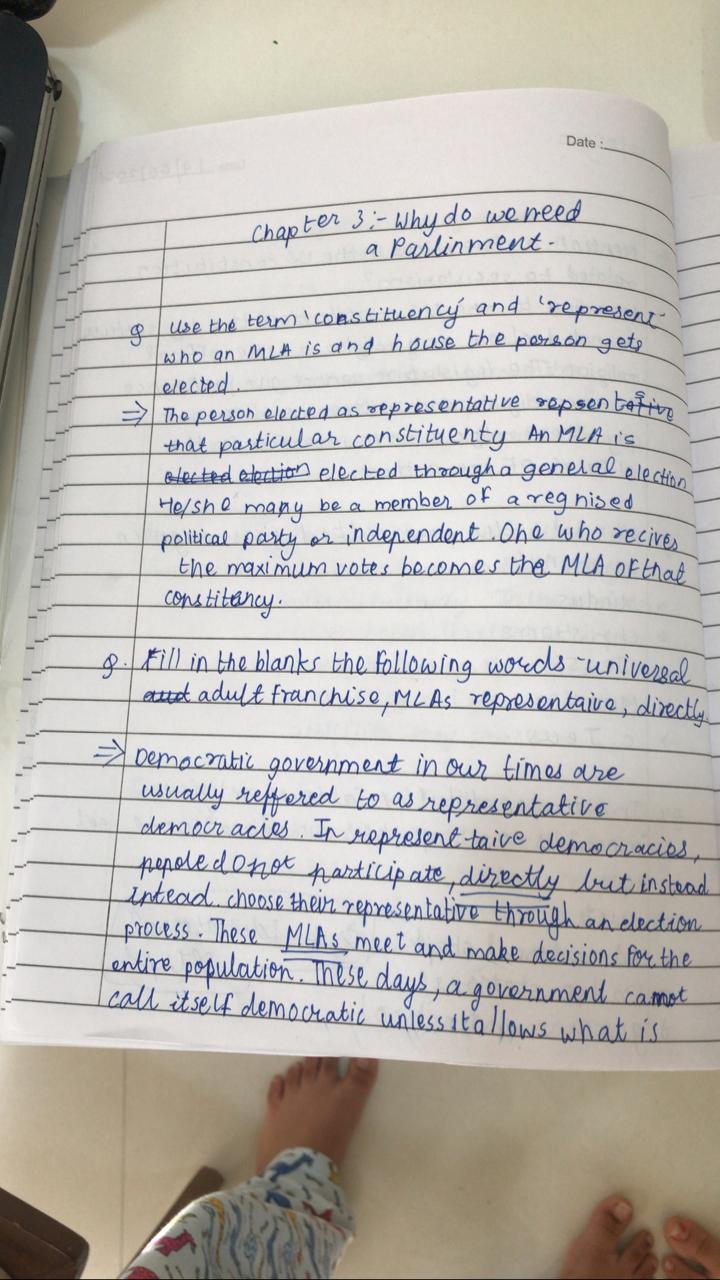 Date :
Chapter 3:- Why do we need
a Parlinment.
Q Use the term 'constituency' and 'represent-
who an MLA is and house the person gets
elected.
⇒ The person elected as representative repsentative
that particular constituenty An MLA is
elected election elected through a general election
He/she many be a member of a regnised
political party or independent. One who recives
the maximum votes becomes the MLA of that
constitency.
Q. Fill in the blanks the following words -universal
aud adult franchise, MLAs representaive, directly
⇒ Democratic government in our times are
usually reffered to as representative
democracies. In represent-taive democracies,
do not participate, directly but instead
Intead. choose their representative through an election
process. These MLAs meet and make decisions for the
entire population. These days, a government cannot
call itself democratic unless it allows what is